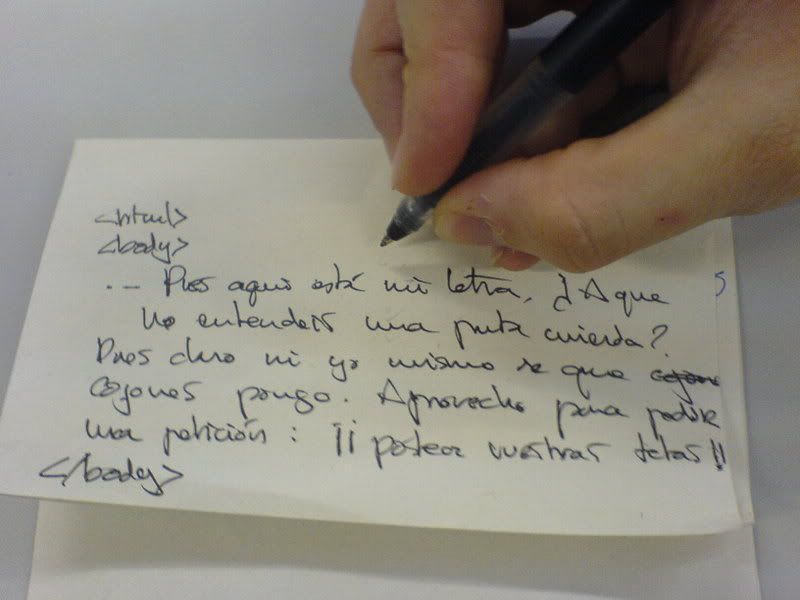 <html>
<body>
... Pues aqui está mi letra, ¿A que
no entendeis una puta mierda?
Pues claro ni yo mismo se que cojone
cojones pongo. Aprovecho para pedir
una petición : ¡¡ postear vuestras tetas!!
</body>